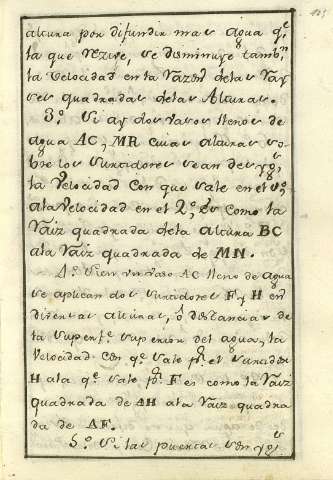 altura por difundir mas agua q.e
la que recive, se disminuye tamb.n
la velocidad en la razon delas ray
ses quadradas delas Alturas.
3.º Si ay dos vasos llenos de
agua AC, MR cuias alturas so
bre los surtidores sean desyg.s
la velocidad con que sale en el 1.º
ala velocidad en el 2.º es como la
raiz quadrada dela altura BC
ala raiz quadrada de MN.
4.º Si en un vaso AC lleno de agua
se aplican dos surtidores F y H en
diferentes alturas, ó distancias de
la superf.e superior del agua, la
velocidad con q.e sale p.r el surtidor
H ala q.e sale p.r F es como la raiz
quadrada de AH ala raiz quadra
da de AF.
5.º Si las puertas son yg.s